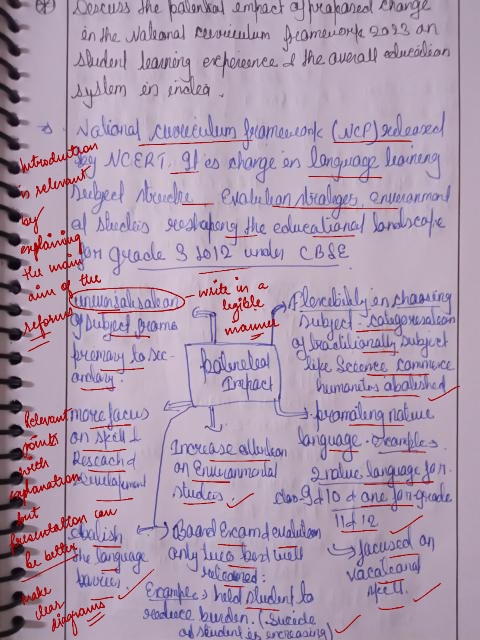 Discuss the potential impact of proposed change
in the National curriculum framework 2023 on
student learning experience & the overall education
system in india.
National curriculum framework (NCF) released
by NCERT. It is change in language learning
subject
Evaluation strategies, environment
reshaping the educational landscape
for grade 3 to 12 under CBSE
Introduction
is relevant
by
explaining
the main
aim of the
reforms
universalisation
of subject from
primary to sec-
ondary.
write in a
legible
manner
Flexibility in choosing
subject. categorisation
of traditionally subject
like Science commerce
humanities abolished
Potential
Impact
more focus
on skill &
Research &
Development
Relevant
points
with
explanation
but
presentation can
be better
make
clear
diagrams
Increase attention
on Environmental
studies.
promoting native
language. Examples
2 native language for
class 9 & 10 & one for grade
11 & 12
focused on
vocational
abolish
the language
barriers
Board Exam & evaluation
only two best will
retained:
Example: help student to
reduce burden. (Suicide
of student is increasing)